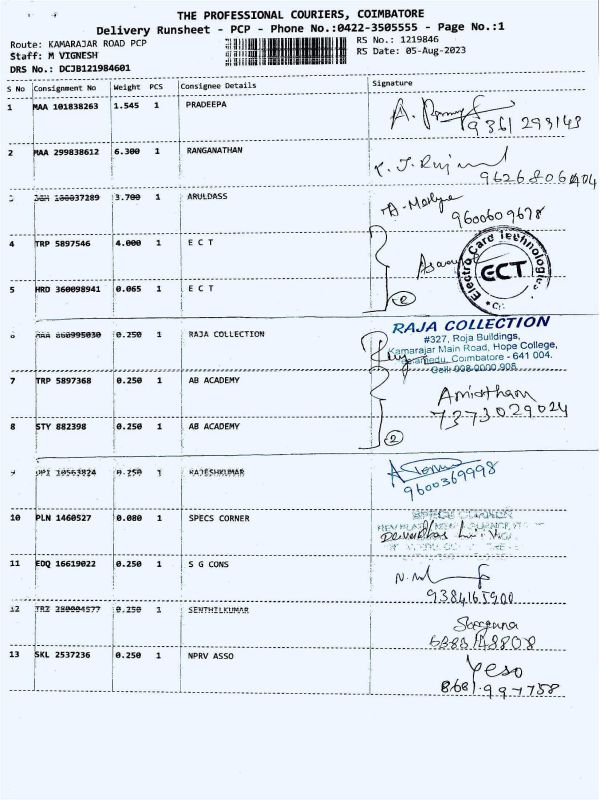 THE PROFESSIONAL COURIERS, COIMBATORE
Delivery Runsheet - PCP - Phone No.:0422-3505555 - Page No.:1
Route: KAMARAJAR ROAD PCP
RS No.: 1219846
Staff: M VIGNESH
RS Date: 05-Aug-2023
DRS No.: DCJB121984601
S No Consignment No Weight PCS Consignee Details Signature
1 MAA 101838263 1.545 1 PRADEEPA
9361293143
2 MAA 299838612 6.300 1 RANGANATHAN
9626806404
3 100037289 3.700 1 ARULDASS
9600609678
4 TRP 5897546 4.000 1 E C T
Electro Care Technologies
ECT
5 HRD 360098941 0.065 1 E C T
2
6 MAA 860995030 0.250 1 RAJA COLLECTION
RAJA COLLECTION
#327, Roja Buildings,
Kamarajar Main Road, Hope College,
Coimbatore - 641 004.
Cell: 908 0000 908
7 TRP 5897368 0.250 1 AB ACADEMY
Amirtham
7373029024
8 STY 882398 0.250 1 AB ACADEMY
2
9 10563824 0.250 1 RAJESHKUMAR
9600369998
10 PLN 1460527 0.080 1 SPECS CORNER
SPECS CORNER
11 EDQ 16619022 0.250 1 S G CONS
9384165900
12 TRZ 280004577 0.250 1 SENTHILKUMAR
13 SKL 2537236 0.250 1 NPRV ASSO
Yeso